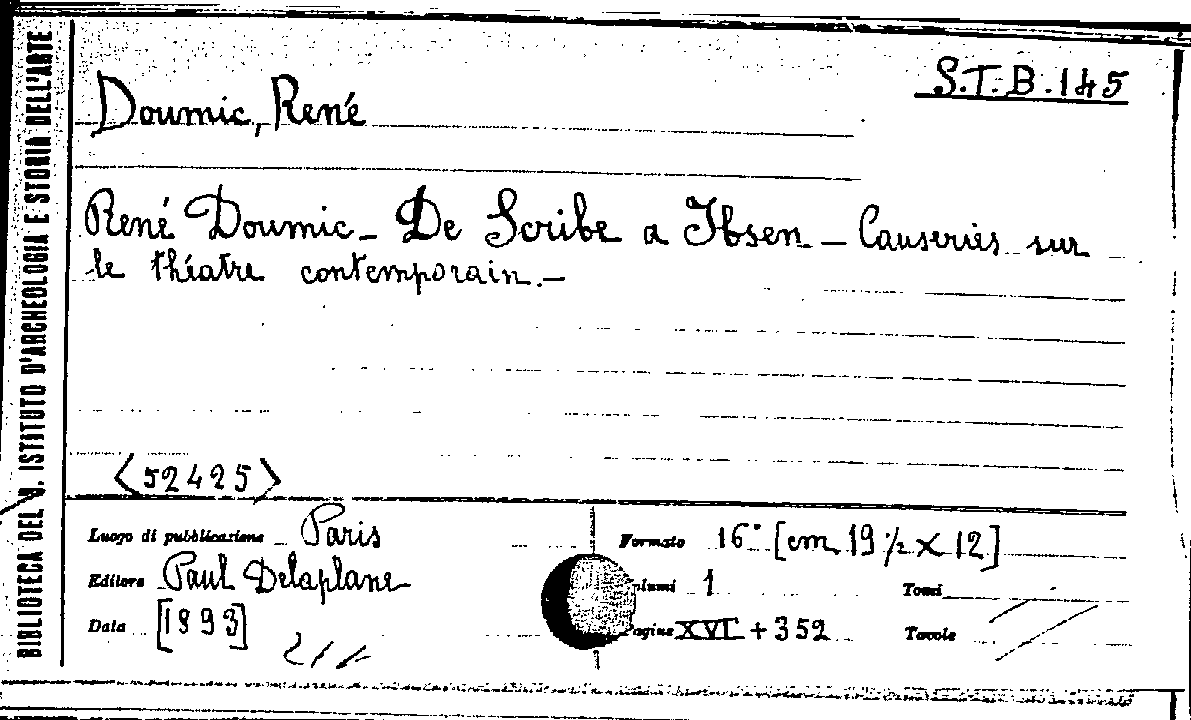 BIBLIOTECA DEL R. ISTITUTO D'ARCHEOLOGIA E STORIA DELL'ARTE
S.T.B.145
Doumic, René
René Doumic - De Scribe a Ibsen - Causeries sur
le théatre contemporain. -
<52425>
Luogo di pubblicazione Paris
Formato 16° [cm 19 1/2 X 12]
Editore Paul Delaplane
Volumi 1
Tomi
Data [1893]
Pagine XVI + 352
Tavole